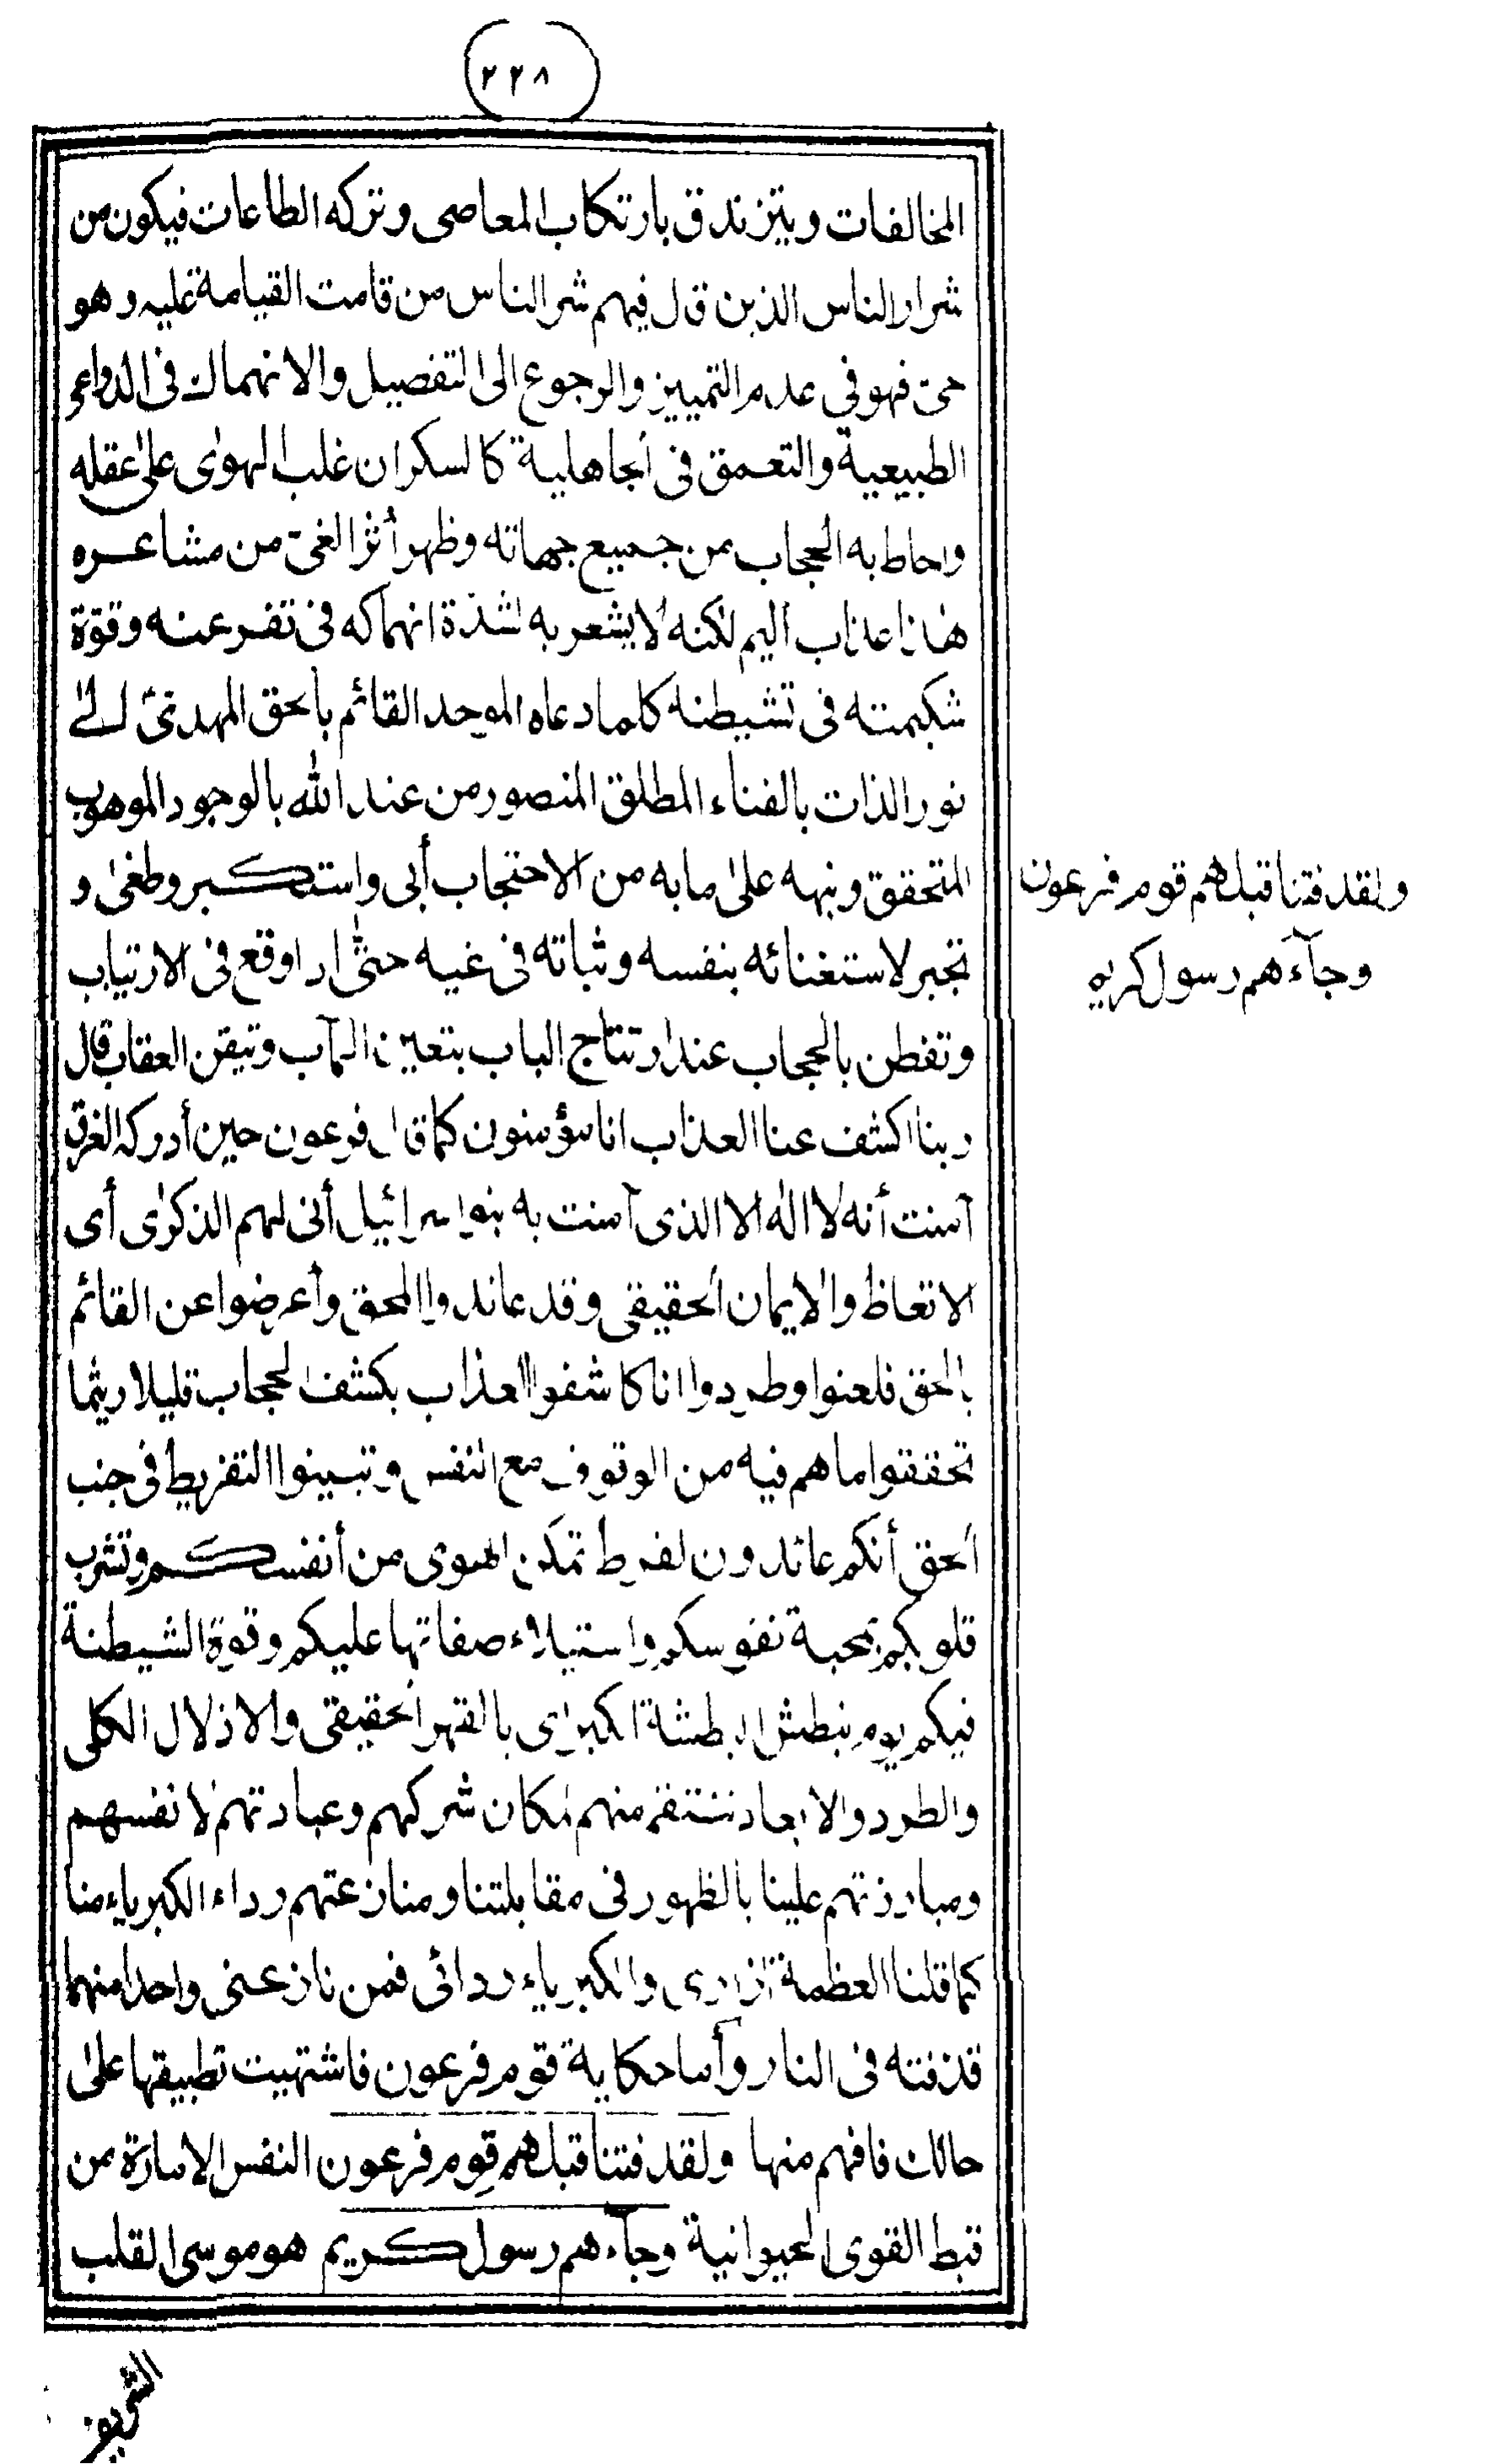 (٢٢٨)
المخالفات ويتزندق بارتكاب المعاصى وتركه الطاعات فيكون من
شرار الناس الذين قال فيهم شر الناس من قامت القيامة عليه وهو
حىّ فهو فى عدم التمييز والرجوع الى التفصيل والانهماك فى الدواعى
الطبيعية والتعمق فى الجاهلية كالسكران غلب الهوى على عقله
واحاط به الحجاب من جميع جهاته وظهر أثر الغىّ من مشاعره
هذا عذاب اليم لكنه لا يشعر به لشدّة انهماكه فى تفرعنه وقوّة
شكيمته فى تشيطنه كلما دعاه الموحد القائم بالحق المهدىّ الى
نور الذات بالفناء المطلق المنصور من عند الله بالوجود الموهوب
المتحقق ونبهه على مابه من الاحتجاب أبى واستكبر وطغى و
تجبر لاستغنائه بنفسه وثباته فى غيه حتى اذا وقع فى الارتياب
وتفطن بالحجاب عند ارتتاج الباب بتعين المآب وتيقن العقاب قال
ربنا اكشف عنا العذاب انا مؤمنون كما قال فرعون حين أدركه الغرق
آمنت أنه لا اله الا الذى آمنت به بنو اسرائيل أنى لهم الذكرى أى
الاتعاظ والايمان الحقيقى وقد عاندوا المحق وأعرضوا عن القائم
بالحق فلعنوا وطردوا انا كاشفوا العذاب بكشف الحجاب قليلا ريثما
تحققوا ما هم فيه من الوقوف مع النفس وتبينوا التفريط فى جنب
الحق أنكم عائدون لفرط تمكن الهوى من أنفسكم وتشرب
قلوبكم بمحبة نفوسكم واستيلاء صفاتها عليكم وقوة الشيطنة
فيكم يوم نبطش البطشة الكبرى بالقهر الحقيقى والاذلال الكلى
والطرد والابعاد ننتقم منهم لمكان شركهم وعبادتهم لانفسهم
ومبارزتهم علينا بالظهور فى مقابلتنا ومنازعتهم رداء الكبرياء منا
كما قلنا العظمة ازارى والكبرياء ردائى فمن نازعنى واحدا منهما
قذفته فى النار وأما حكاية قوم فرعون فاشتهيت تطبيقها على
حالك فافهم منها ولقد فتنا قبلهم قوم فرعون النفس الامارة من
قبط القوى الحيوانية وجآءهم رسول كريم هو موسى القلب
ولقد فتنا قبلهم قوم فرعون
وجآءهم رسول كريم
الشريف